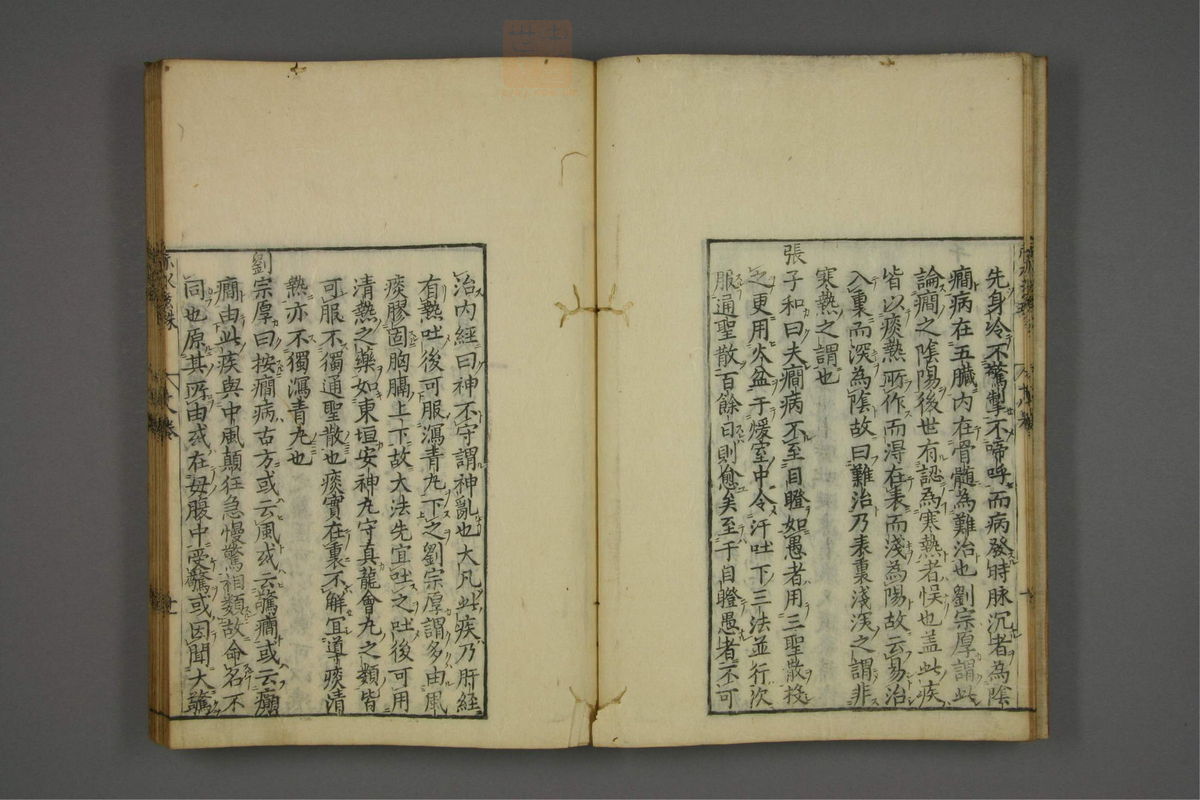 先身冷不驚掣不啼呼而病發時脉沉者為陰
癇病在五臟内在骨髓為難治也劉宗厚謂此
論癇之陰陽後世有認為寒熱者悮也盖此疾
皆以痰熱所作而淂在表而淺為陽故云易治
入裏而深為陰故曰難治乃表裏淺深之謂非
寒熱之謂也
張子和曰夫癇病不至目瞪如愚者用三聖散投
之更用火盆于煖室中令汗吐下三法並行次
服通聖散百餘日則愈矣至于目瞪愚者不可
治内經曰神不守謂神亂也大凡此疾乃肝經
有熱吐後可服瀉青丸下之劉宗厚謂多由風
痰膠固胸膈上下故大法先宜吐之吐後可用
清熱之藥如東垣安神丸守真龍會丸之類皆
可服不獨通聖散也痰實在裏不解宜導痰清
熱亦不獨瀉青丸也
劉宗厚曰按癇病古方或云風或云驚癇或云癲
癇由此疾與中風顛狂急慢驚相類故命名不
同也原其所由或在母腹中受驚或因聞大驚